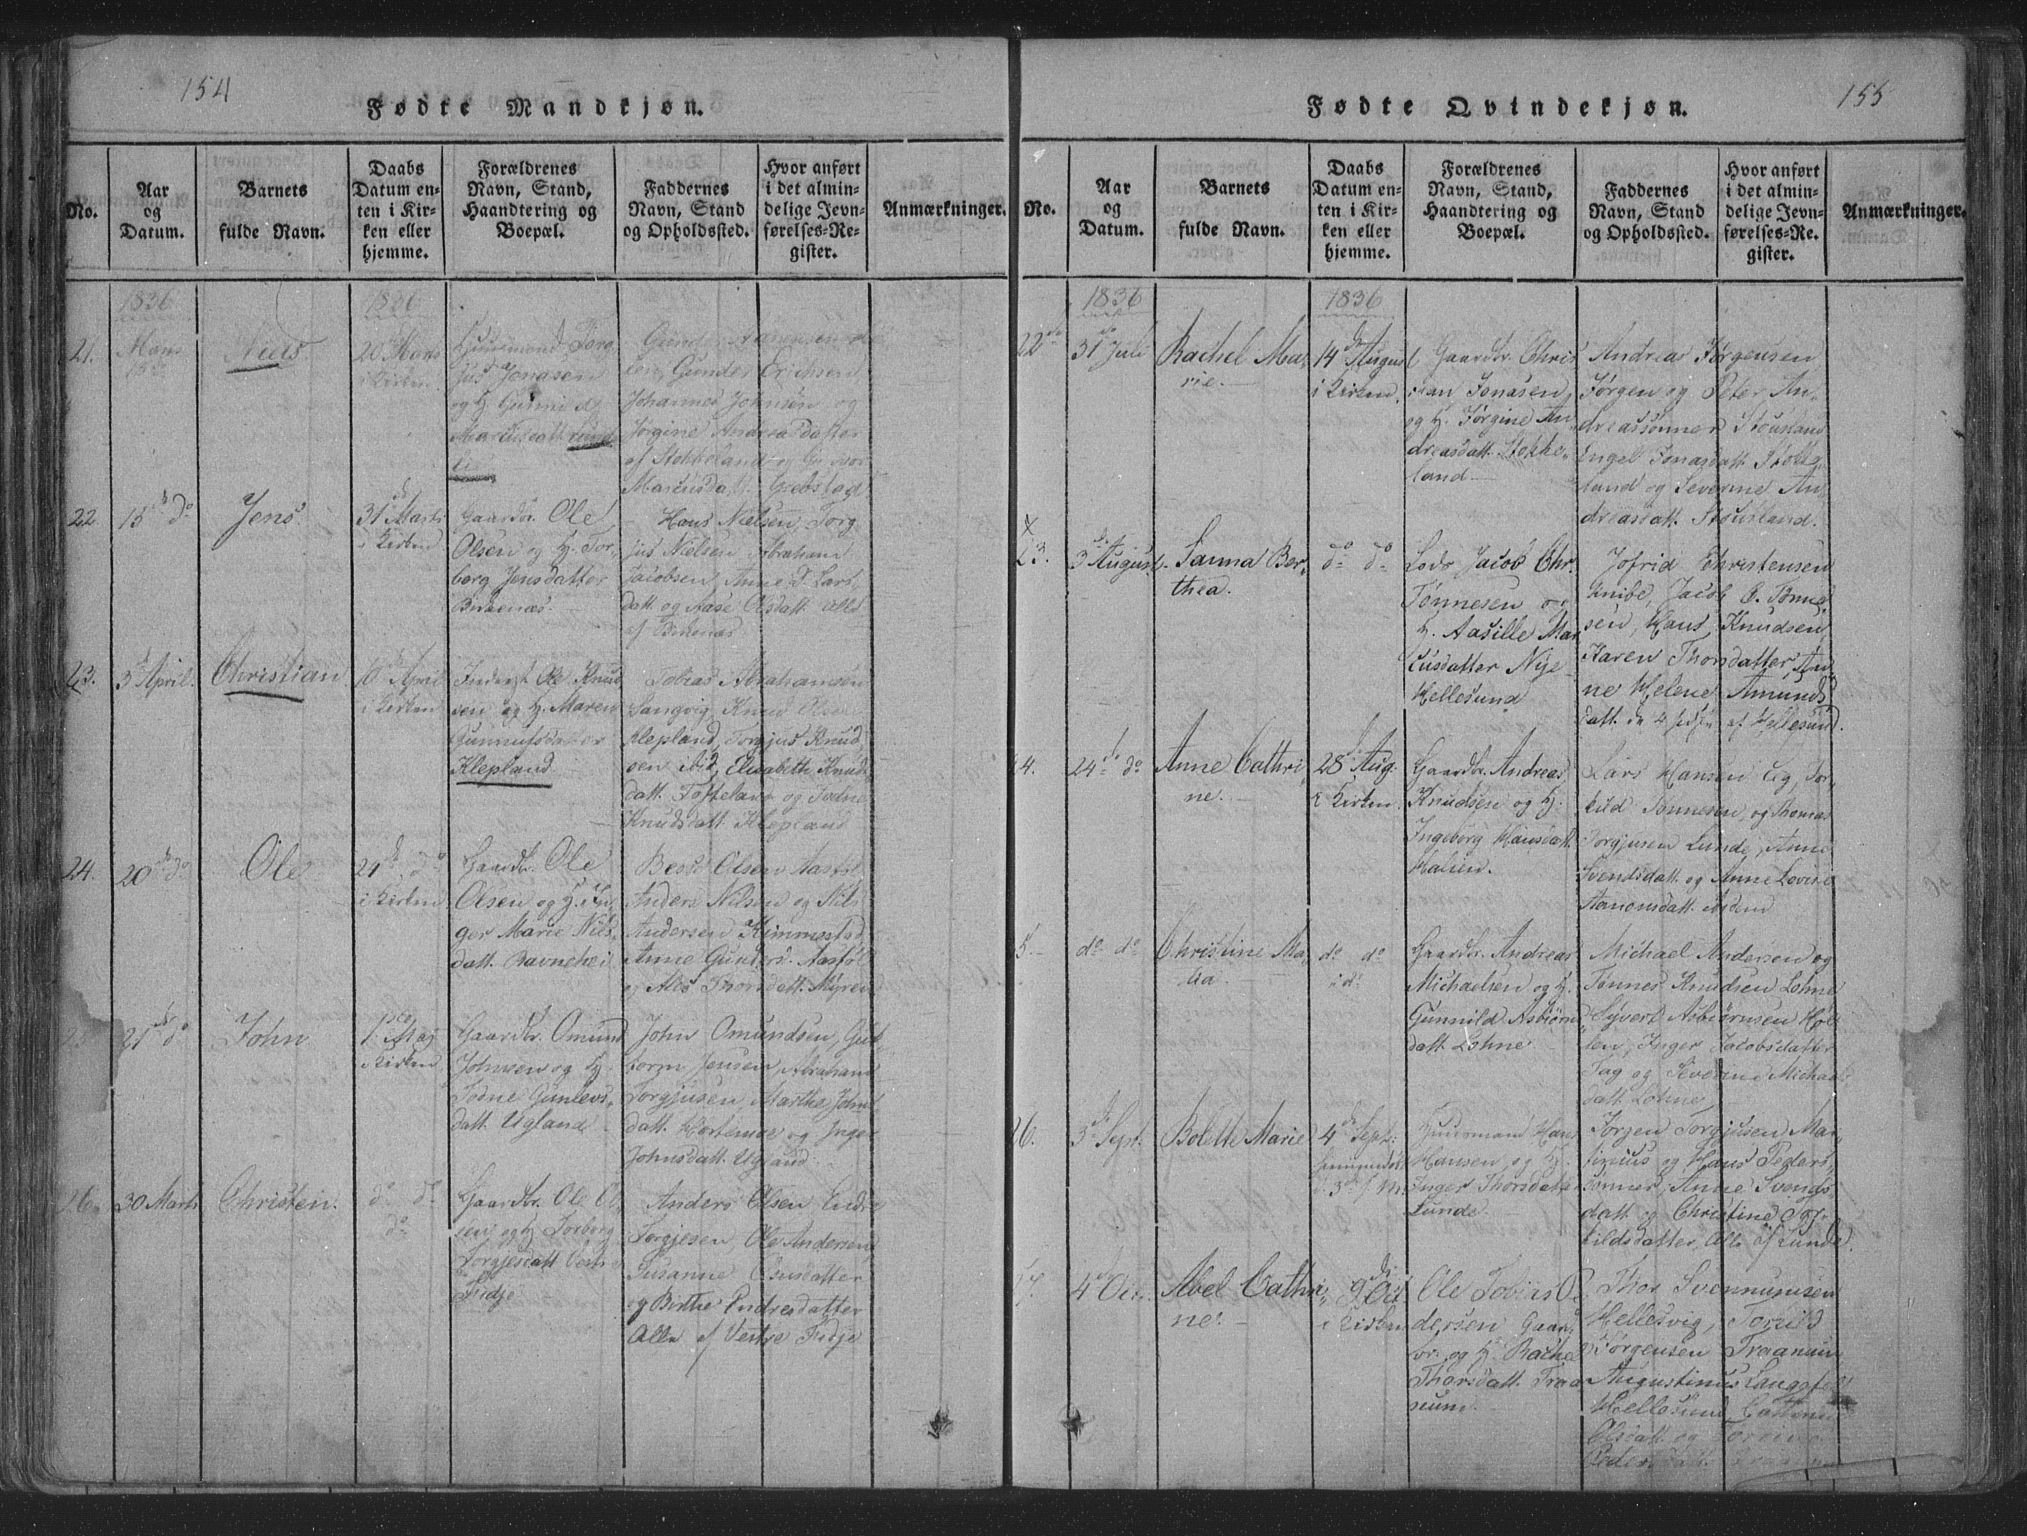 154
Fødte Mandkjøn.
No.
Aar
og
Datum.
Barnets
fulde Navn.
Daabs
Datum en-
ten i Kir-
ken eller
hjemme.
Forældrenes
Navn, Stand,
Haandtering og
Boepæl.
Faddernes
Navn, Stand
og Opholdssted.
Hvor anført
i det almin-
delige Jevn-
førelses-Re-
gister.
Anmærkninger.
1836
1836
21.
Mars
15
Niels
20 Mars
i Kirken
Huusmand Torg
jus Jonasen
og H. Gunni
Marcusdatt
Gunder
Gunder Erichsen
Johannes Johnsen og
Jørgine Andreasdatter
af Stokkeland og
Marcusdatt. Grebstad
22
15 do
Jens
31 Marts
i Kirken
Gaardbr. Ole
Olsen og H. Tor
borg Jensdatter
Birkenæs.
Hans Nielsen, Torg
jus Nielsen Abraham
Jacobsen, Anne L. Lars
datt. og Aase Olsdatt. Alle
af Birkenæs
23.
3 April.
Christian
10 April
i Kirken
Inderst Ole Knud
sen og H. Maren
Gunnufsdatter
Klepland
Tobias Abrahamsen
Langvig, Knud Olsen
Klepland, Torgjus Knud
sen ibid, Elisabeth Knuds
datt. Tofteland og Todne
Knudsdatt. Klepland
24.
20 do
Ole
24 do
i Kirken
Gaardbr. Ole
Olsen og H. In
ger Marie Niels
datt. Ravnehei
Bess Olsen Aasføl
Anders Nilsen og Nils
Andersen Kimmestad
Anne Gunders. Aasføl
og Alis Thorsdatt. Myren
21 do
John
1 Maj
i Kirken
Gaardbr. Omund
Johnsen og H.
Todne Gunlevs
datt. Ugland
John Omundsen, Gut
torm Jensen, Abraham
Torgjusen, Marthe Johns
datt. Hortemoe og Inger
Johnsdatt. Ugland
26.
30 Marts
Christen.
do do
do
Gaardbr. Ole Ol
sen og H. Torborg
Torgjesdatt Vestre
Fidje
Anders Olsen Endre
Torgjesen, Ole Andersen,
Susanne Osusdatter
og Birthe Endresdatter
Alle af Vestre Fidje
155
Fødte Qvindekjøn.
No.
Aar
og
Datum.
Barnets
fulde Navn.
Daabs
Datum en-
ten i Kir-
ken eller
hjemme.
Forældrenes
Navn, Stand,
Haandtering og
Boepæl.
Faddernes
Navn, Stand
og Opholdssted.
Hvor anført
i det almin-
delige Jevn-
førelses-Re-
gister.
Anmærkninger.
1836
1836
22
31 Juli
Rachel Ma-
rie.
14 August
i Kirken
Gaardbr. Chris
tian Jonasen
og H. Jørgine An
dreasdatt. Stokke-
land
Andreas Jørgensen
Jørgen og Peter An-
dreassønner Stousland
Engel Jonasdatt. Stokke
land og Severine An
dreasdatt. Stousland.
23.
3 August
Sanna Ber-
thea.
do do
Lods Jacob Chr.
Tønnesen og
H. Aasille Mar
cusdatter Nye
Hellesund
Jofrid Christensen
Knibe, Jacob C. Tønne
sen, Hans Knudsen
Karen Thorsdatter, An
ne Helene Amunds
datt. de 4 sidste af Hellesund.
24.
24 do
Anne Cathri
ne.
28 Aug.
i Kirken
Gaardbr. Andreas
Knudsen og H.
Ingeborg Hansdatt.
Halsen.
Lars Hansen Lig, Tor
kild Tønnesen, og Thomas
Torgjusen Lunde, Anne
Svendsdatt. og Anne Lovise
Aanonsdatt. ibidem
5.
do do
Christine Ma-
lia
do do
i do
Gaardbr. Andreas
Michaelsen og H.
Gunnild Asbiørns
datt. Lohne
Michael Andersen og
Tønnes Knudsen Lohne
Syvert Asbiørnsen Høl
len, Inger Jacobsdatter
Tag og Severine Michaels
datt. Lohne
26.
3 Sept.
Bolette Marie
4 Sept.
hjemmedøbt
d. 3
Huusmand Hans
Hansen og H.
Inger Thorsdatt
Lunde
Jørgen Torgjusen Mar
tinius og Hans Peders
sønner, Anne Svends
datt. og Christine Ter
kildsdatter, Alle af Lunde.
7.
4 Oct.
Abel Cathri-
ne.
9 Oct
i Kirken
Ole Tobias P
dersen Gaard
br. og H. Rachel
Thorsdatt. Traa
neum
Thor Svennumsen
Hellesvig, Torkild
Jørgensen Traanum
Augustinus Langfeldt
Hellesund, Cathrine
Olsdatt. og
Pedersdatt. Traanum